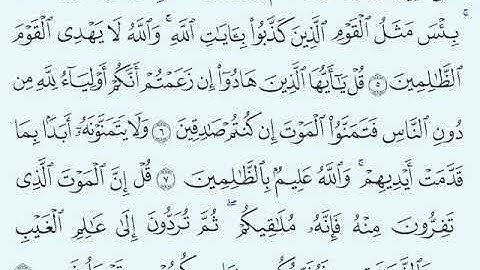 بِئْسَ مَثَلُ ٱلْقَوْمِ ٱلَّذِينَ كَذَّبُوا۟ بِـَٔايَٰتِ ٱللَّهِ ۚ وَٱللَّهُ لَا يَهْدِى ٱلْقَوْمَ
ٱلظَّٰلِمِينَ ٥ قُلْ يَٰٓأَيُّهَا ٱلَّذِينَ هَادُوٓا۟ إِن زَعَمْتُمْ أَنَّكُمْ أَوْلِيَآءُ لِلَّهِ مِن
دُونِ ٱلنَّاسِ فَتَمَنَّوُا۟ ٱلْمَوْتَ إِن كُنتُمْ صَٰدِقِينَ ٦ وَلَا يَتَمَنَّوْنَهُۥٓ أَبَدًۢا بِمَا
قَدَّمَتْ أَيْدِيهِمْ ۚ وَٱللَّهُ عَلِيمٌۢ بِٱلظَّٰلِمِينَ ٧ قُلْ إِنَّ ٱلْمَوْتَ ٱلَّذِى
تَفِرُّونَ مِنْهُ فَإِنَّهُۥ مُلَٰقِيكُمْ ۖ ثُمَّ تُرَدُّونَ إِلَىٰ عَٰلِمِ ٱلْغَيْبِ